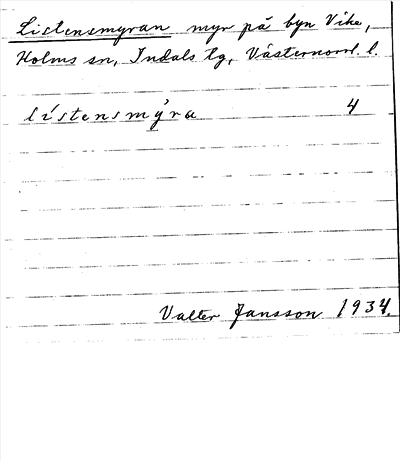 Listensmyran myr på byn Vike,
Holms sn, Indals tg, Västernorrl. l.
lístensmy̌ra 4
Valter Jansson 1934.